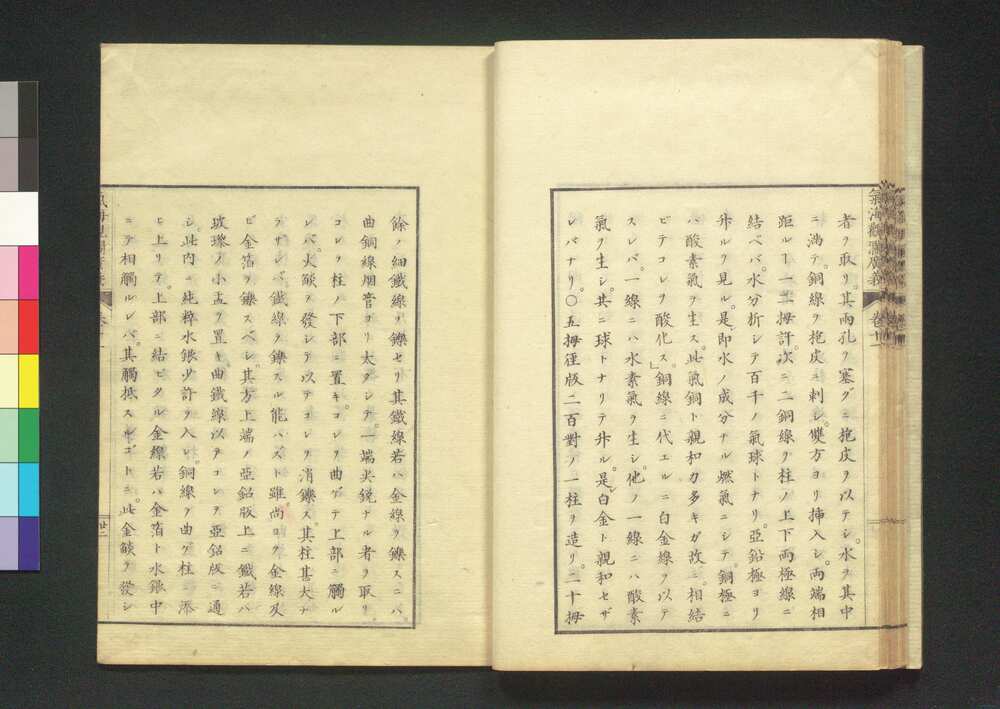 氣海觀瀾廣義 卷十二
者ヲ取リ。其両孔ヲ塞グニ抱皮ヲ以テシ。水ヲ其中
ニ満テ。銅線ヲ抱皮ニ刺シ。雙方ヨリ挿入シ。両端相
距ルヿ一二拇許。次ニ二銅線ヲ柱ノ上下両極線ニ
結ベバ。水分析シテ百千ノ氣球トナリ。亞鉛極ヨリ
升ルヲ見ル。是即水ノ成分ナル燃氣ニシテ。銅極ニ
ハ酸素氣ヲ生ス。此氣銅ト親和力多キガ故ニ。相結
ビテコレヲ酸化ス」。銅線ニ代エルニ白金線ヲ以テ
スレバ。一線ニハ水素氣ヲ生シ。他ノ一線ニハ酸素
氣ヲ生シ。共ニ球トナリテ升ル。是白金ト親和セザ
レバナリ。○五拇徑版二百對ノ一柱ヲ造リ。二十拇
餘ノ細鐵線ヲ鑠セリ其鐵線若ハ金線ヲ鑠スニハ
曲銅線烟管ヨリ大クシテ。一端尖鋭ナル者ヲ取リ
コレヲ柱ノ下部ニ置キ。コレヲ曲ゲテ上部ニ觸ル
レバ。火燄ヲ發シテ以テコレヲ消鑠ス。其柱甚大ナ
ラザレバ。鐵線ヲ鑠スル能ハズト雖尚ヨク金線及
ビ金箔ヲ鑠スベシ。其方上端ノ亞鉛版上ニ鐵若ハ
玻璨ノ小盂ヲ置キ曲鐵線以テコレヲ亞鉛版ニ通
シ。此内ニ純粹水銀少許ヲ入レ。銅線ヲ曲ゲ柱ニ添
ヒ上リテ。上部ニ結ビタル金線若ハ金箔ト水銀中
ニテ相觸ルレバ。其觸抵スルゴトニ。此金燄ヲ發シ
廿三